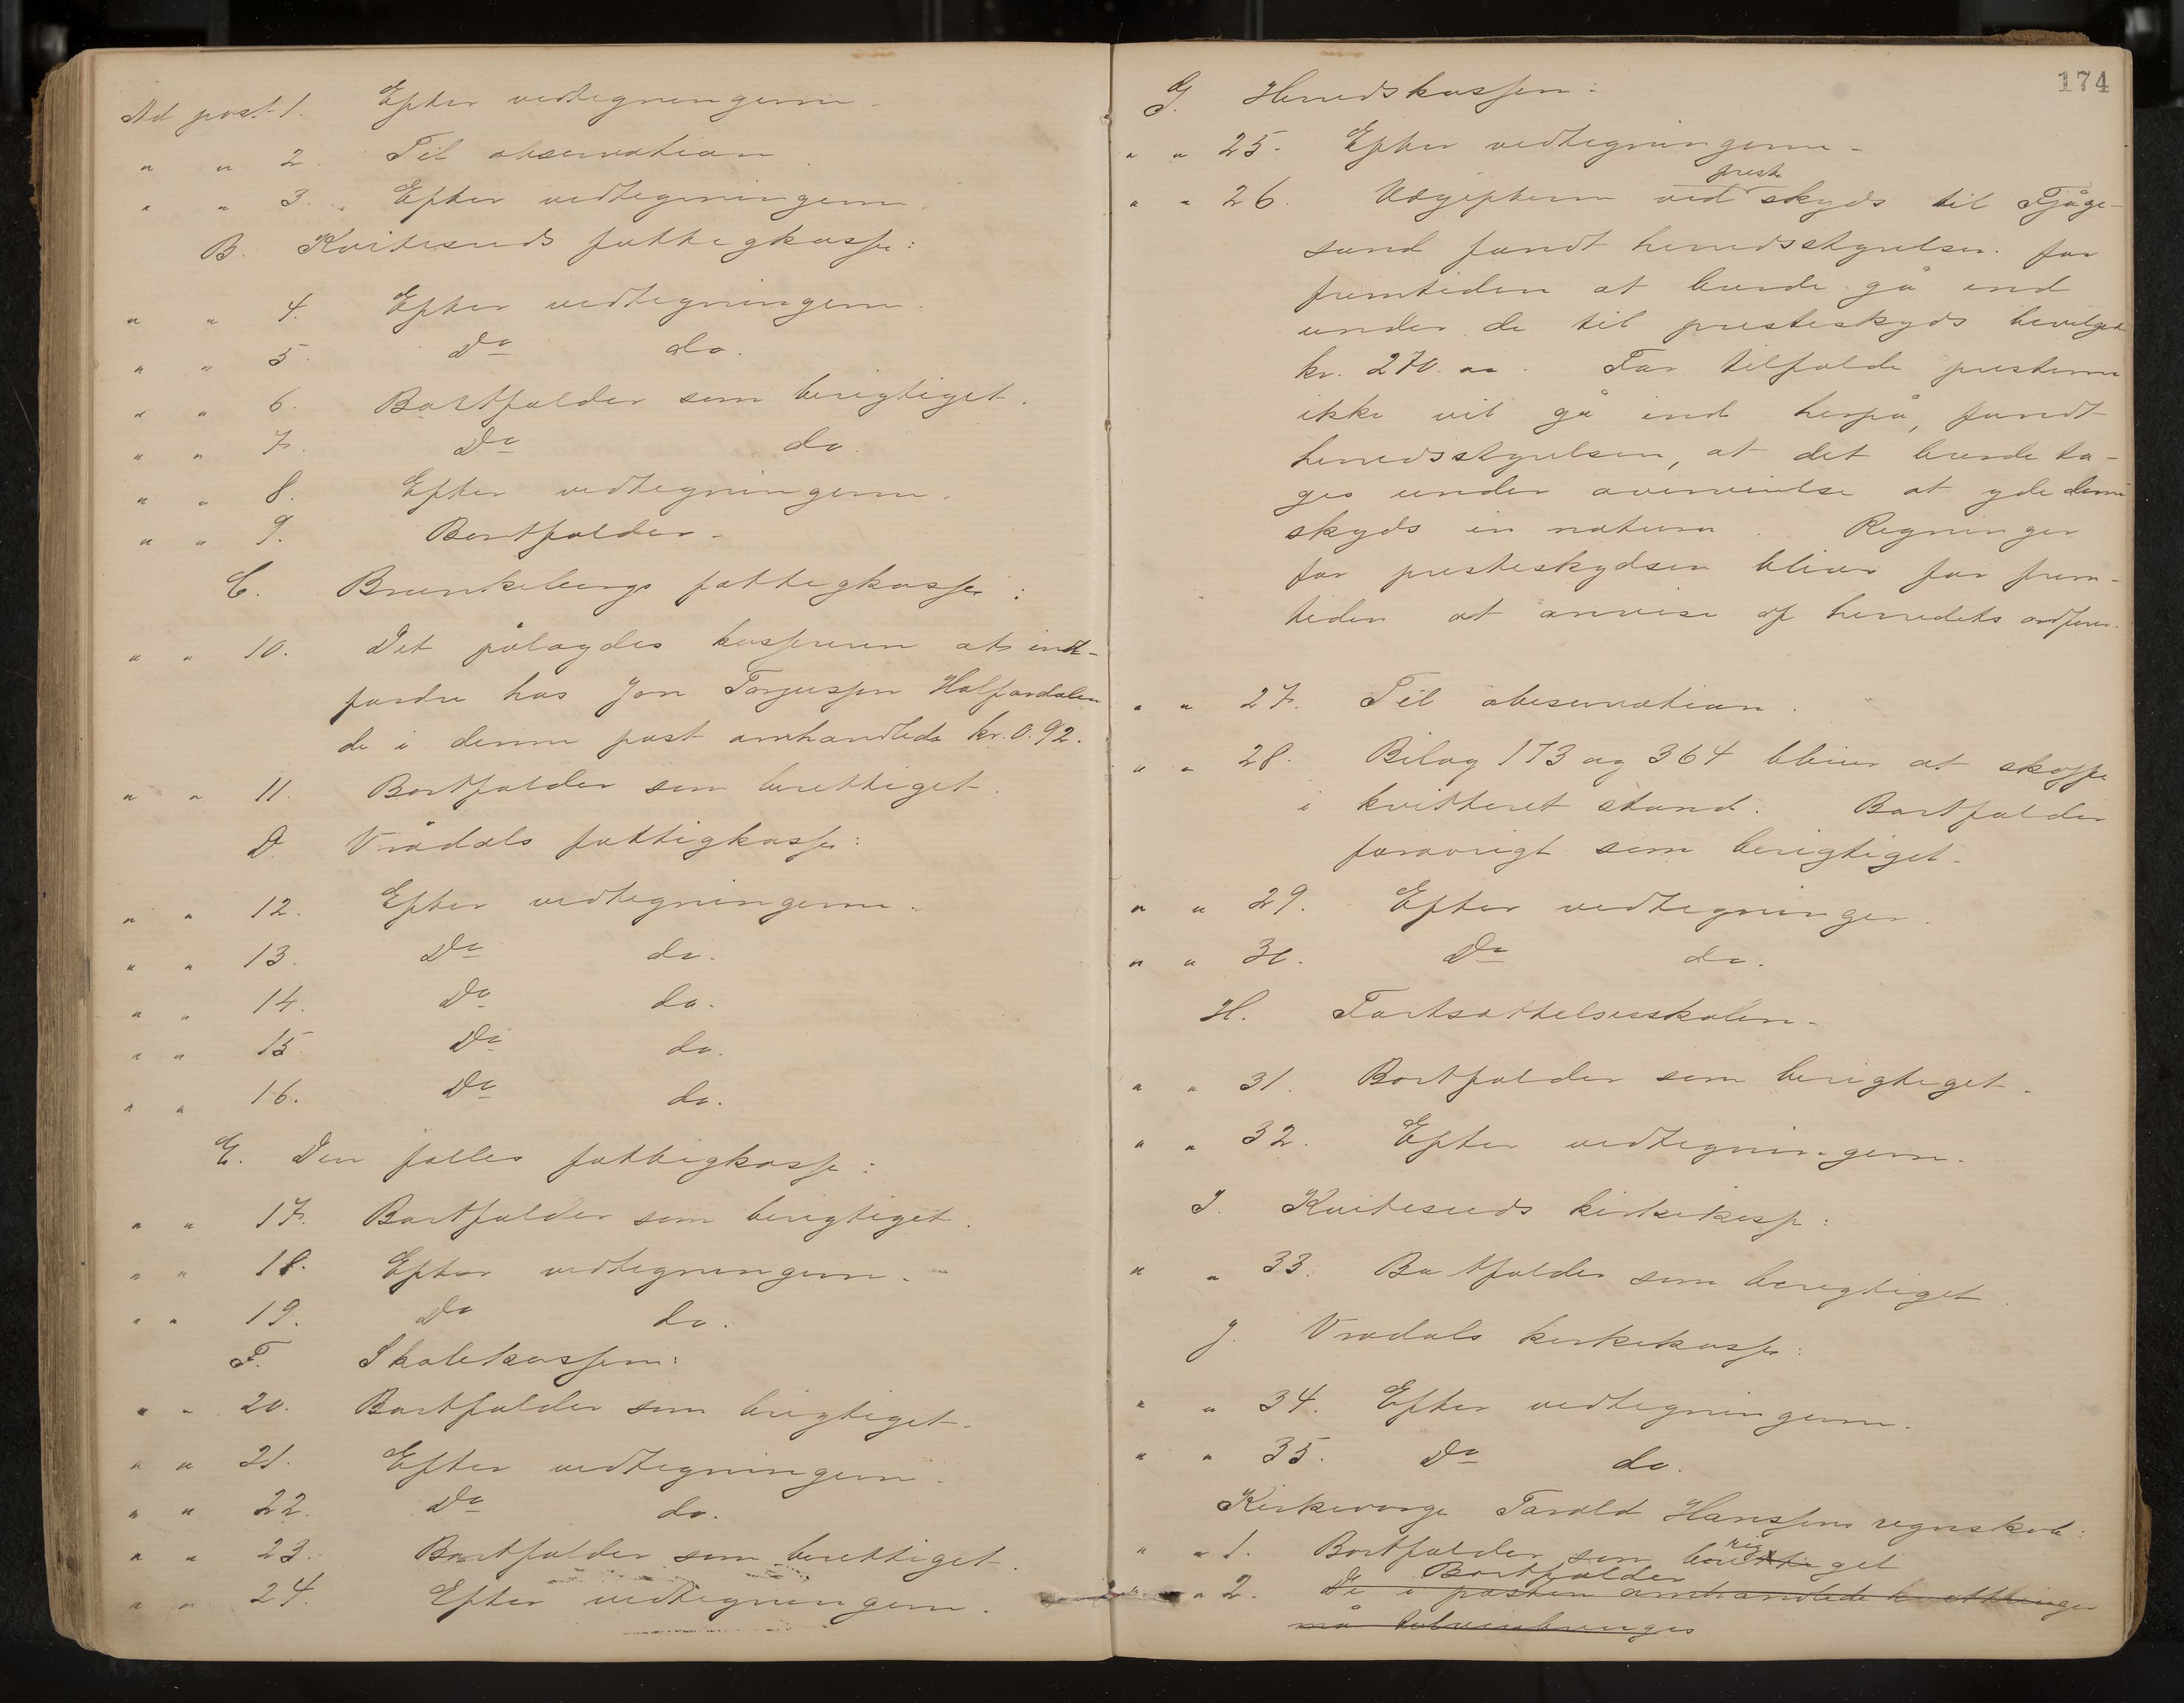 Ad post 1. Efter vedtegningerne.
" " 2. Til observation.
" " 3. Efter vedtegningerne.
B. Kviteseids fattigkasse:
" " 4. Efter vedtegningerne.
" " 5. Do do.
" " 6. Bortfalder som berigtiget.
" " 7. Do do.
" " 8. Efter vedtegningerne.
" " 9. Bortfalder.
C. Brunkebergs fattigkasse:
" " 10. Det pålagdes kassereren at ind-
fordre hos Jon Torjussen Halfardalen
de i denne post omhandlede kr. 0.92.
" " 11. Bortfalder som berettiget.
D. Vrådals fattigkasse:
" " 12. Efter vedtegningerne.
" " 13. Do do.
" " 14. Do do.
" " 15. Do do.
" " 16. Do do.
E. Den fælles fattigkasse:
" " 17. Bortfalder som berigtiget.
" " 18. Efter vedtegningerne.
" " 19. Do do.
F. Skolekassen:
" " 20. Bortfalder som berigtiget.
" " 21. Efter vedtegningerne.
" " 22. Do do.
" " 23. Bortfalder som berettiget.
" " 24. Efter vedtegningerne.
174
G. Herredskassen:
" " 25. Efter vedtegningerne.
" " 26. Udgifterne ved preste skyds til Fjåge-
sund fandt herredsstyrelsen for
fremtiden at burde gå ind
under de til presteskyds bevilgede
kr. 270.00. For tilfælde presterne
ikke vil gå ind herpå, fandt
herredsstyrelsen, at det burde ta-
ges under overveielse at yde denne
skyds in natura. Regninger
for presteskydsen bliver for frem-
tiden at anvise af herredets ordfører.
" " 27. Til observation.
" " 28. Bilag 173 og 364 bliver at skaffe
i kvitteret stand. Bortfalder
forøvrigt som berigtiget.
" " 29. Efter vedtegninger.
" " 30. Do do.
H. Fortsættelsesskolen.
" " 31. Bortfalder som berigtiget.
" " 32. Efter vedtegningerne.
I. Kviteseids kirkekasse:
" " 33. Bortfalder som berigtiget.
J. Vradals kirkekasse:
" " 34. Efter vedtegningerne.
" " 35. Do do.
Kirkeværge Tarald Hansens regnskab:
" " 1. Bortfalder som berigtiget
Bortfalder
" " 2. De i posten omhandlede
må